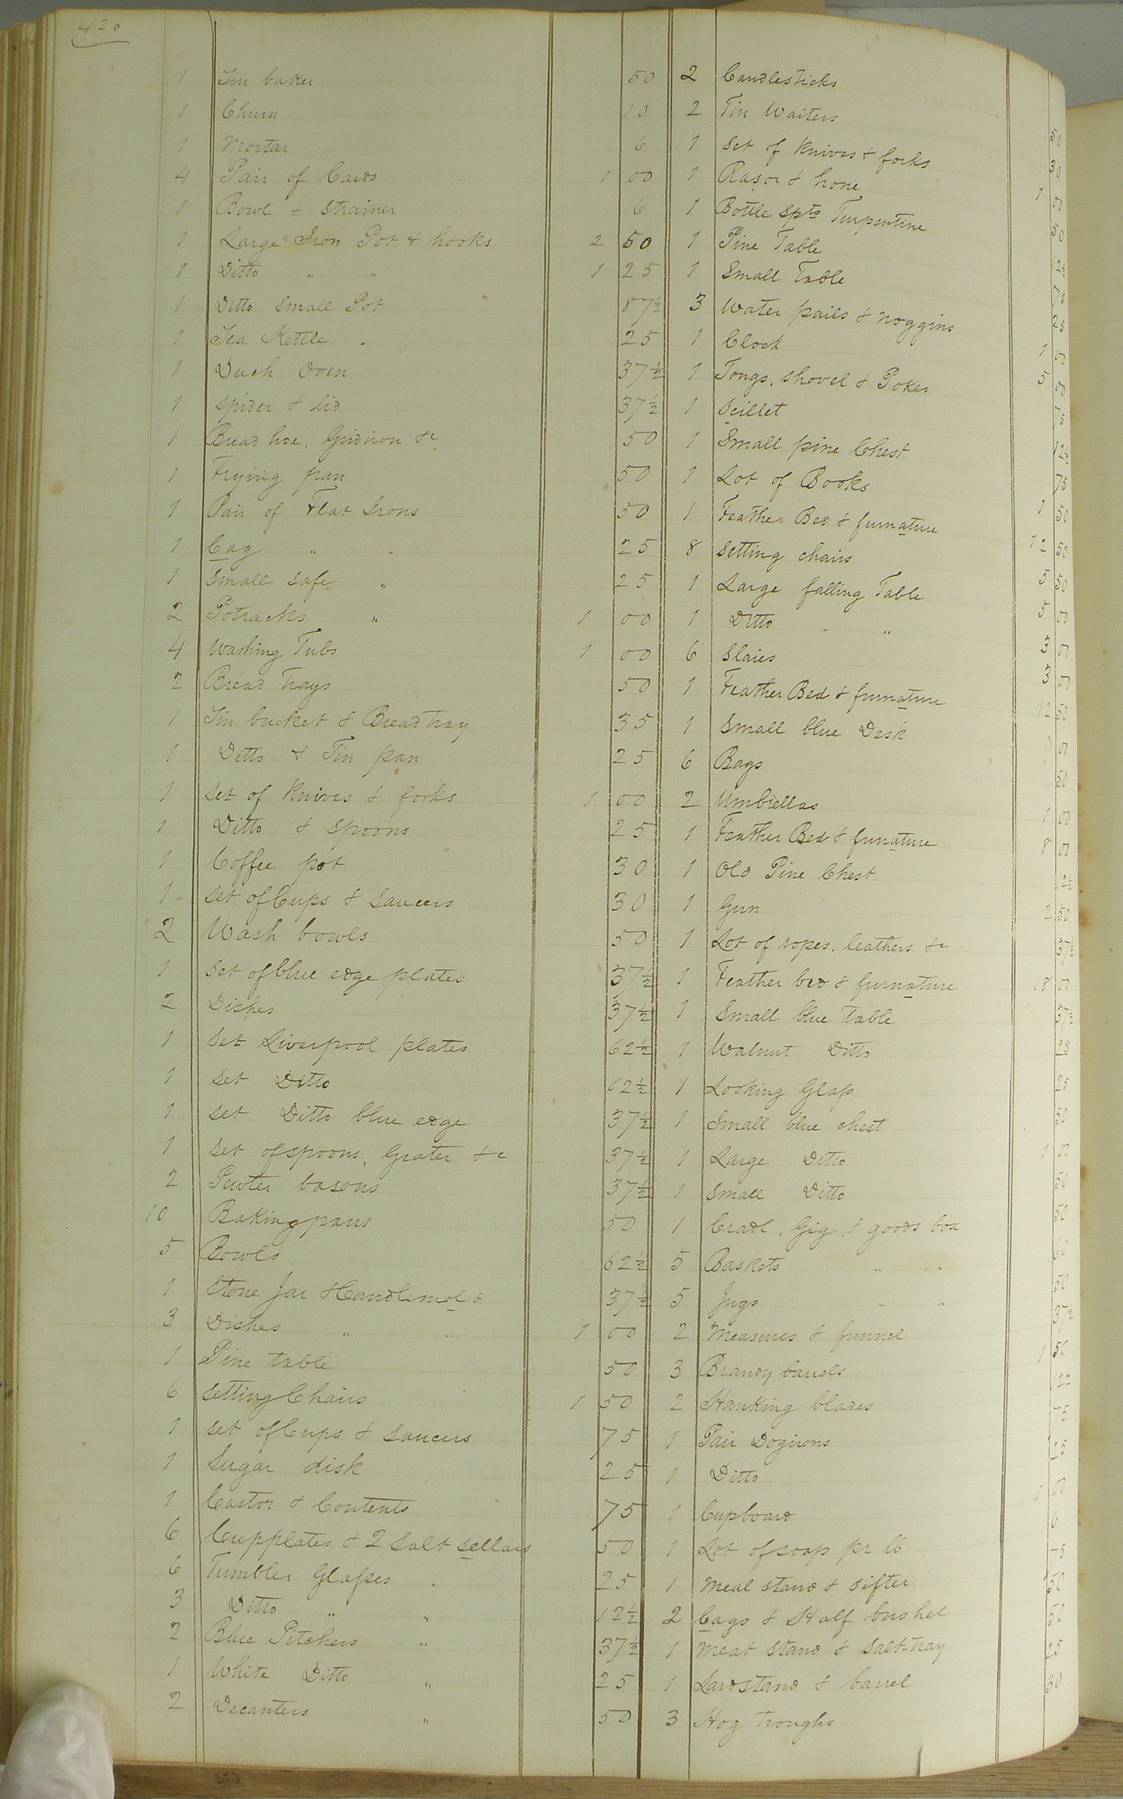 426
1 Tin baker 50
1 Churn 10
1 Mortar 6
4 Pair of Cards 1 00
1 Bowl & Strainer 6
1 Large Iron Pot & hooks 2 50
1 Ditto " " 1 25
1 Ditto Small Pot 87½
1 Tea Kettle 25
1 Duch Oven 37½
1 Spider & lid 37½
1 Bread hoe, Gridiron &c 50
1 Frying pan 50
1 Pair of Flat Irons 50
1 Cag " 25
1 Small Safe " 25
2 Potracks " 1 00
4 Washing Tubs 1 00
2 Bread trays 50
1 Tin bucket & Breadtray 35
1 Ditto & Tin pan 25
1 Set of Knives & forks 1 00
1 Ditto & Spoons 25
1 Coffee pot 30
1 Set of Cups & Saucers 30
2 Wash bowls 50
1 Set of blue edge plates 37½
2 Dishes 37½
1 Set Liverpool plates 62½
1 Set Ditto 62½
1 Set Ditto blue edge 37½
1 Set of spoons, Grater &c 37½
2 Pewter basons 37½
10 Baking pans 50
5 Bowls 62½
1 Stone Jar & Candlemold 37½
3 Dishes " 1 00
1 Pine table 50
6 Setting Chairs 1 50
1 Set of Cups & Saucers 75
1 Sugar disk 25
1 Castor & Contents 75
6 Cupplates & 2 Salt sellars 50
6 Tumbler Glasses 25
3 Ditto " " 12½
2 Blue Pitchers " 37½
1 White Ditto " 25
2 Decanters " 50
2 Candlesticks
2 Tin Waiters 50
1 Set of Knives & forks 30
1 Rasor & hone 1 00
1 Bottle Spts Turpentine 50
1 Pine Table 12½
1 Small Table 75
3 Water pails & Noggins 25
1 Clock 1 00
1 Tongs, Shovel & Poker 5 00
1 Scillet 75
1 Small pine Chest 12½
1 Lot of Books 75
1 Feather Bed & furnature 1 50
8 Setting chairs 12 50
1 Large falling Table 5 50
1 Ditto " " 5 00
6 Slaies 3 00
1 Feather Bed & furnature 3 00
1 Small blue Desk 12 50
6 Bags 00
2 Umbrellas 50
1 Feather Bed & furnature 1 00
1 Old Pine Chest 8 00
1 Gun 12½
1 Lot of ropes, leathers &c 2 50
1 Feather bed & furnature 37½
1 Small blue table 18 00
1 Walnut Ditto 37½
1 Looking Glass 25
1 Small blue chest 25
1 Large Ditto 50
1 Small Ditto 1 00
1 Cradl, Gig & goods box 50
5 Baskets " 50
5 Jugs "
2 Measures & funnel 50
3 Brandy barrels 37½
2 Hanking blades 1 50
1 Pair Dogirons
1 Ditto 75
1 Cupboard 25
1 Lot of soap pr lb 1 00
1 Meal stand & Sifter 6
2 Cags & Half bushel 75
1 Meat Stand & Salt-tray 50
1 Lardstand & barrel 50
3 Hog troughs 25
60